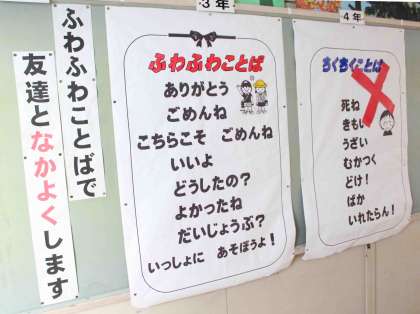 3年
4年
ふわふわことばで
友達となかよくします
ふわふわことば
ありがとう
ごめんね
こちらこそ ごめんね
いいよ
どうしたの?
よかったね
だいじょうぶ?
いっしょに あそぼうよ!
ちくちくことば
死ね
きもい
うざい
むかつく
どけ!
ばか
いれたらん!